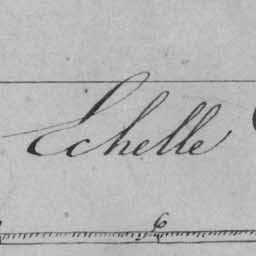 Echelle
6